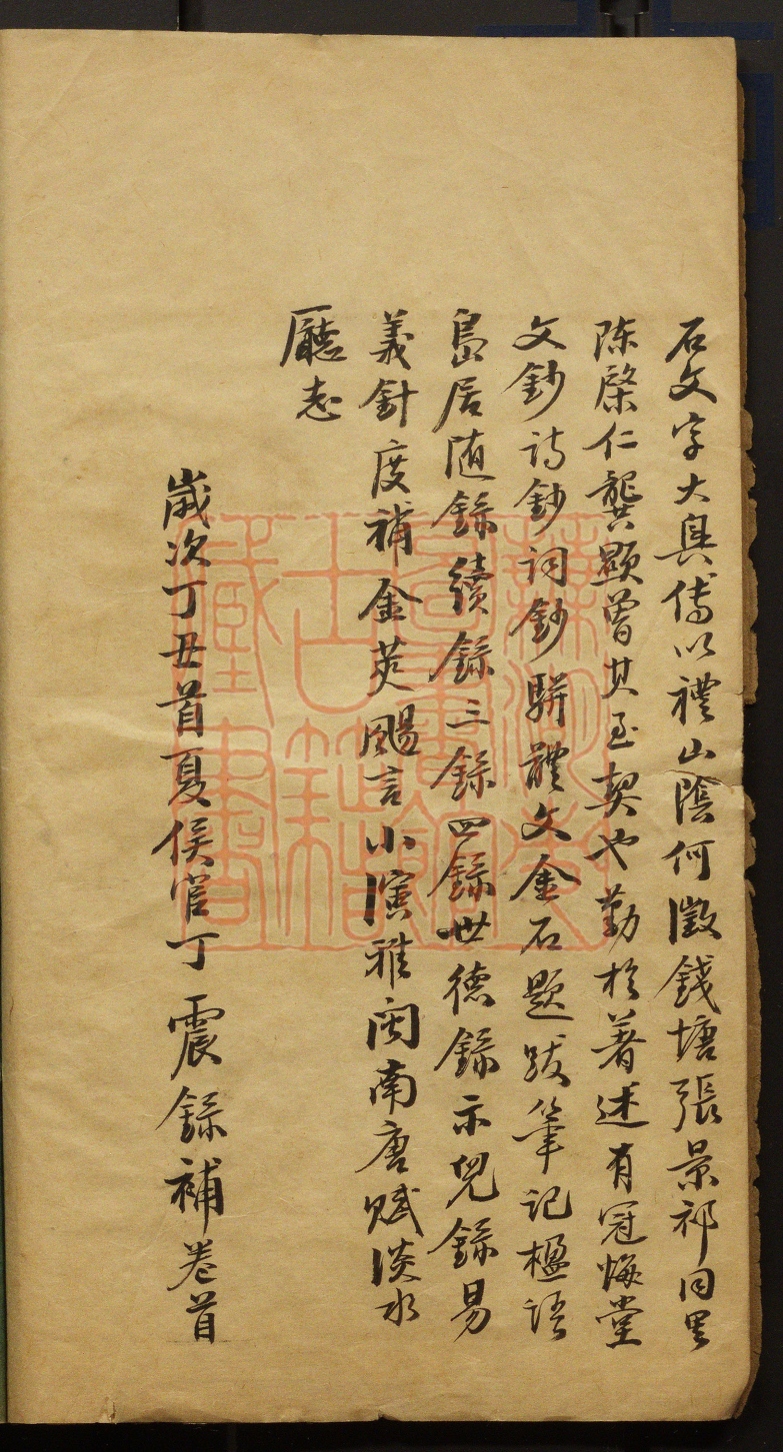 石文字大興傅以禮山陰何澂錢塘張景祁同里
陈棨仁龔顯曾其至契也勤於著述有冠悔堂
文鈔詩鈔詞鈔駢體文金石題跋筆記楹語
島居随錄續錄三錄四錄世德錄示兒錄易
義針度補金荚颺言小演雅闽南唐赋淡水
廳志
歲次丁丑首夏侯官丁震錄補卷首